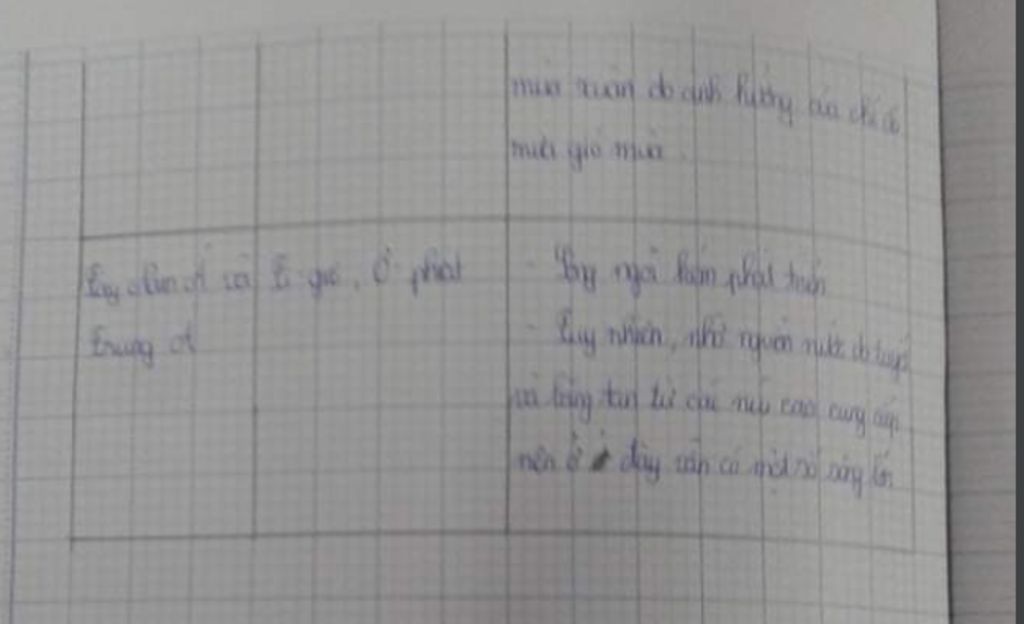 mùa xuân do ảnh hưởng của chế độ
mưa gió mùa
Tây nam á và
trung á
Ít gió, ở phát
- Sông ngòi kém phát triển
- Tuy nhiên, nhờ nguồn nước do tuyết
và băng tan từ các núi cao cung cấp
nên ở đây vẫn có một số sông lớn